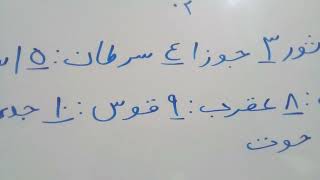 ٠٢
ثور ٣ جوزا ٤ سرطان : ٥
: ٨ عقرب : ٩ قوس : ١٠ جد
حوت